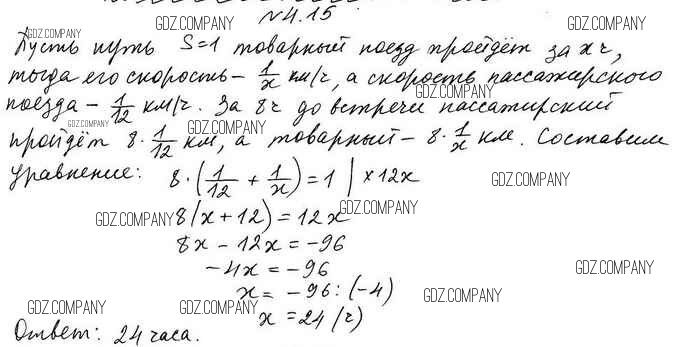 №4.15
Пусть путь S=1 товарный поезд пройдёт за x ч,
тогда его скорость – 1/x км/ч, а скорость пассажирского
поезда – 1/12 км/ч. За 8 ч до встречи пассажирский
пройдёт 8 · 1/12 км, а товарный – 8 · 1/x км. Составим
уравнение: 8 · (1/12 + 1/x) = 1 | × 12x
8(x + 12) = 12x
8x – 12x = –96
–4x = –96
x = –96 : (–4)
x = 24 (ч)
Ответ: 24 часа.
GDZ.COMPANY
GDZ.COMPANY
GDZ.COMPANY
GDZ.COMPANY
GDZ.COMPANY
GDZ.COMPANY
GDZ.COMPANY
GDZ.COMPANY
GDZ.COMPANY
GDZ.COMPANY
GDZ.COMPANY
GDZ.COMPANY
GDZ.COMPANY